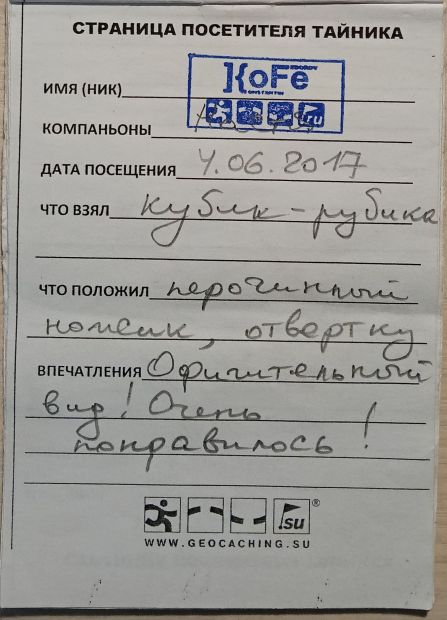 СТРАНИЦА ПОСЕТИТЕЛЯ ТАЙНИКА
ИМЯ (НИК) ]{oFe
КОМПАНЬОНЫ
.su
ДАТА ПОСЕЩЕНИЯ 4.06.2017
ЧТО ВЗЯЛ кубик-рубика
ЧТО ПОЛОЖИЛ перочинный
ножик, отвертку
ВПЕЧАТЛЕНИЯ Офигительный
вид! Очень
понравилось!
.su ®
WWW.GEOCACHING.SU